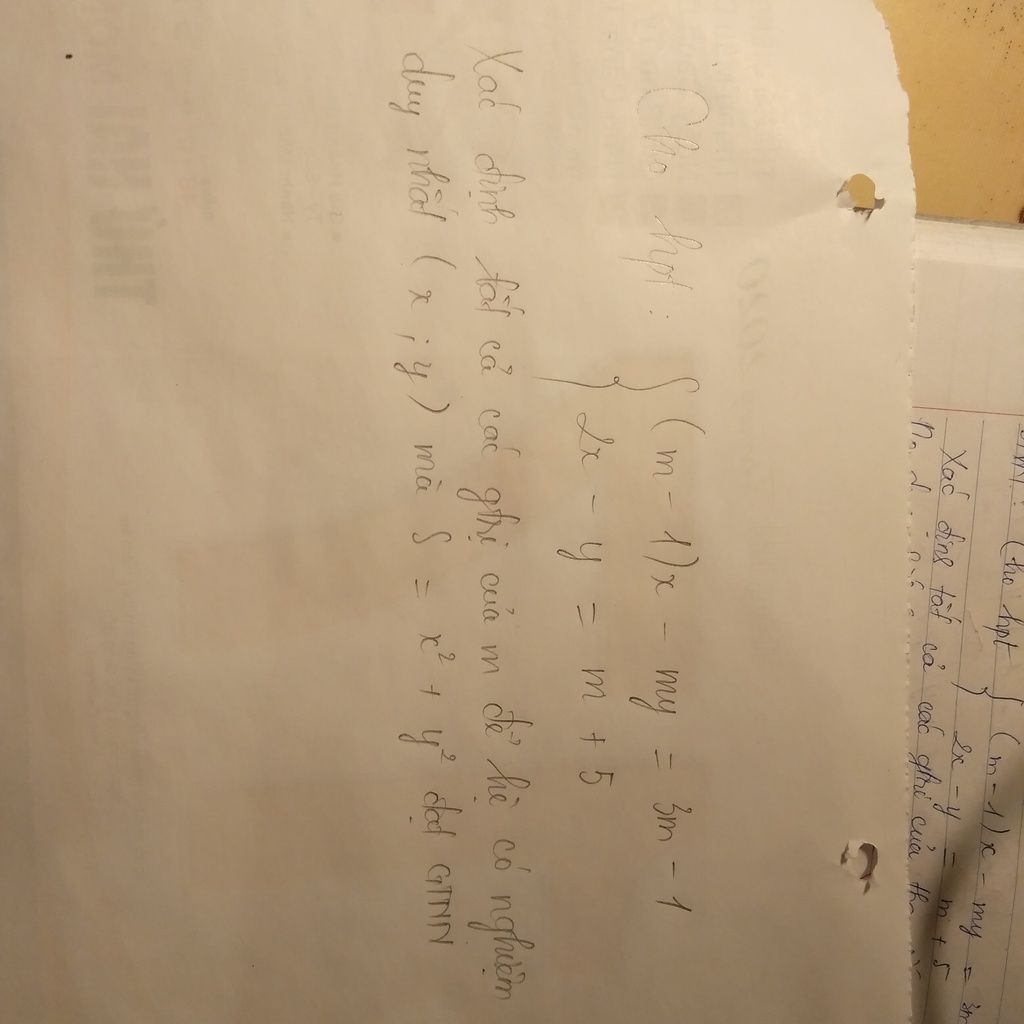 Cho hpt: { (m - 1)x - my = 3m - 1
2x - y = m + 5
Xác định tất cả các gtrị của m để hệ có nghiệm
duy nhất (x ; y) mà S = x² + y² đạt GTNN
Cho hpt { (m - 1)x - my = 3m
2x - y = m + 5
Xác định tất cả các gtrị của
THỬ